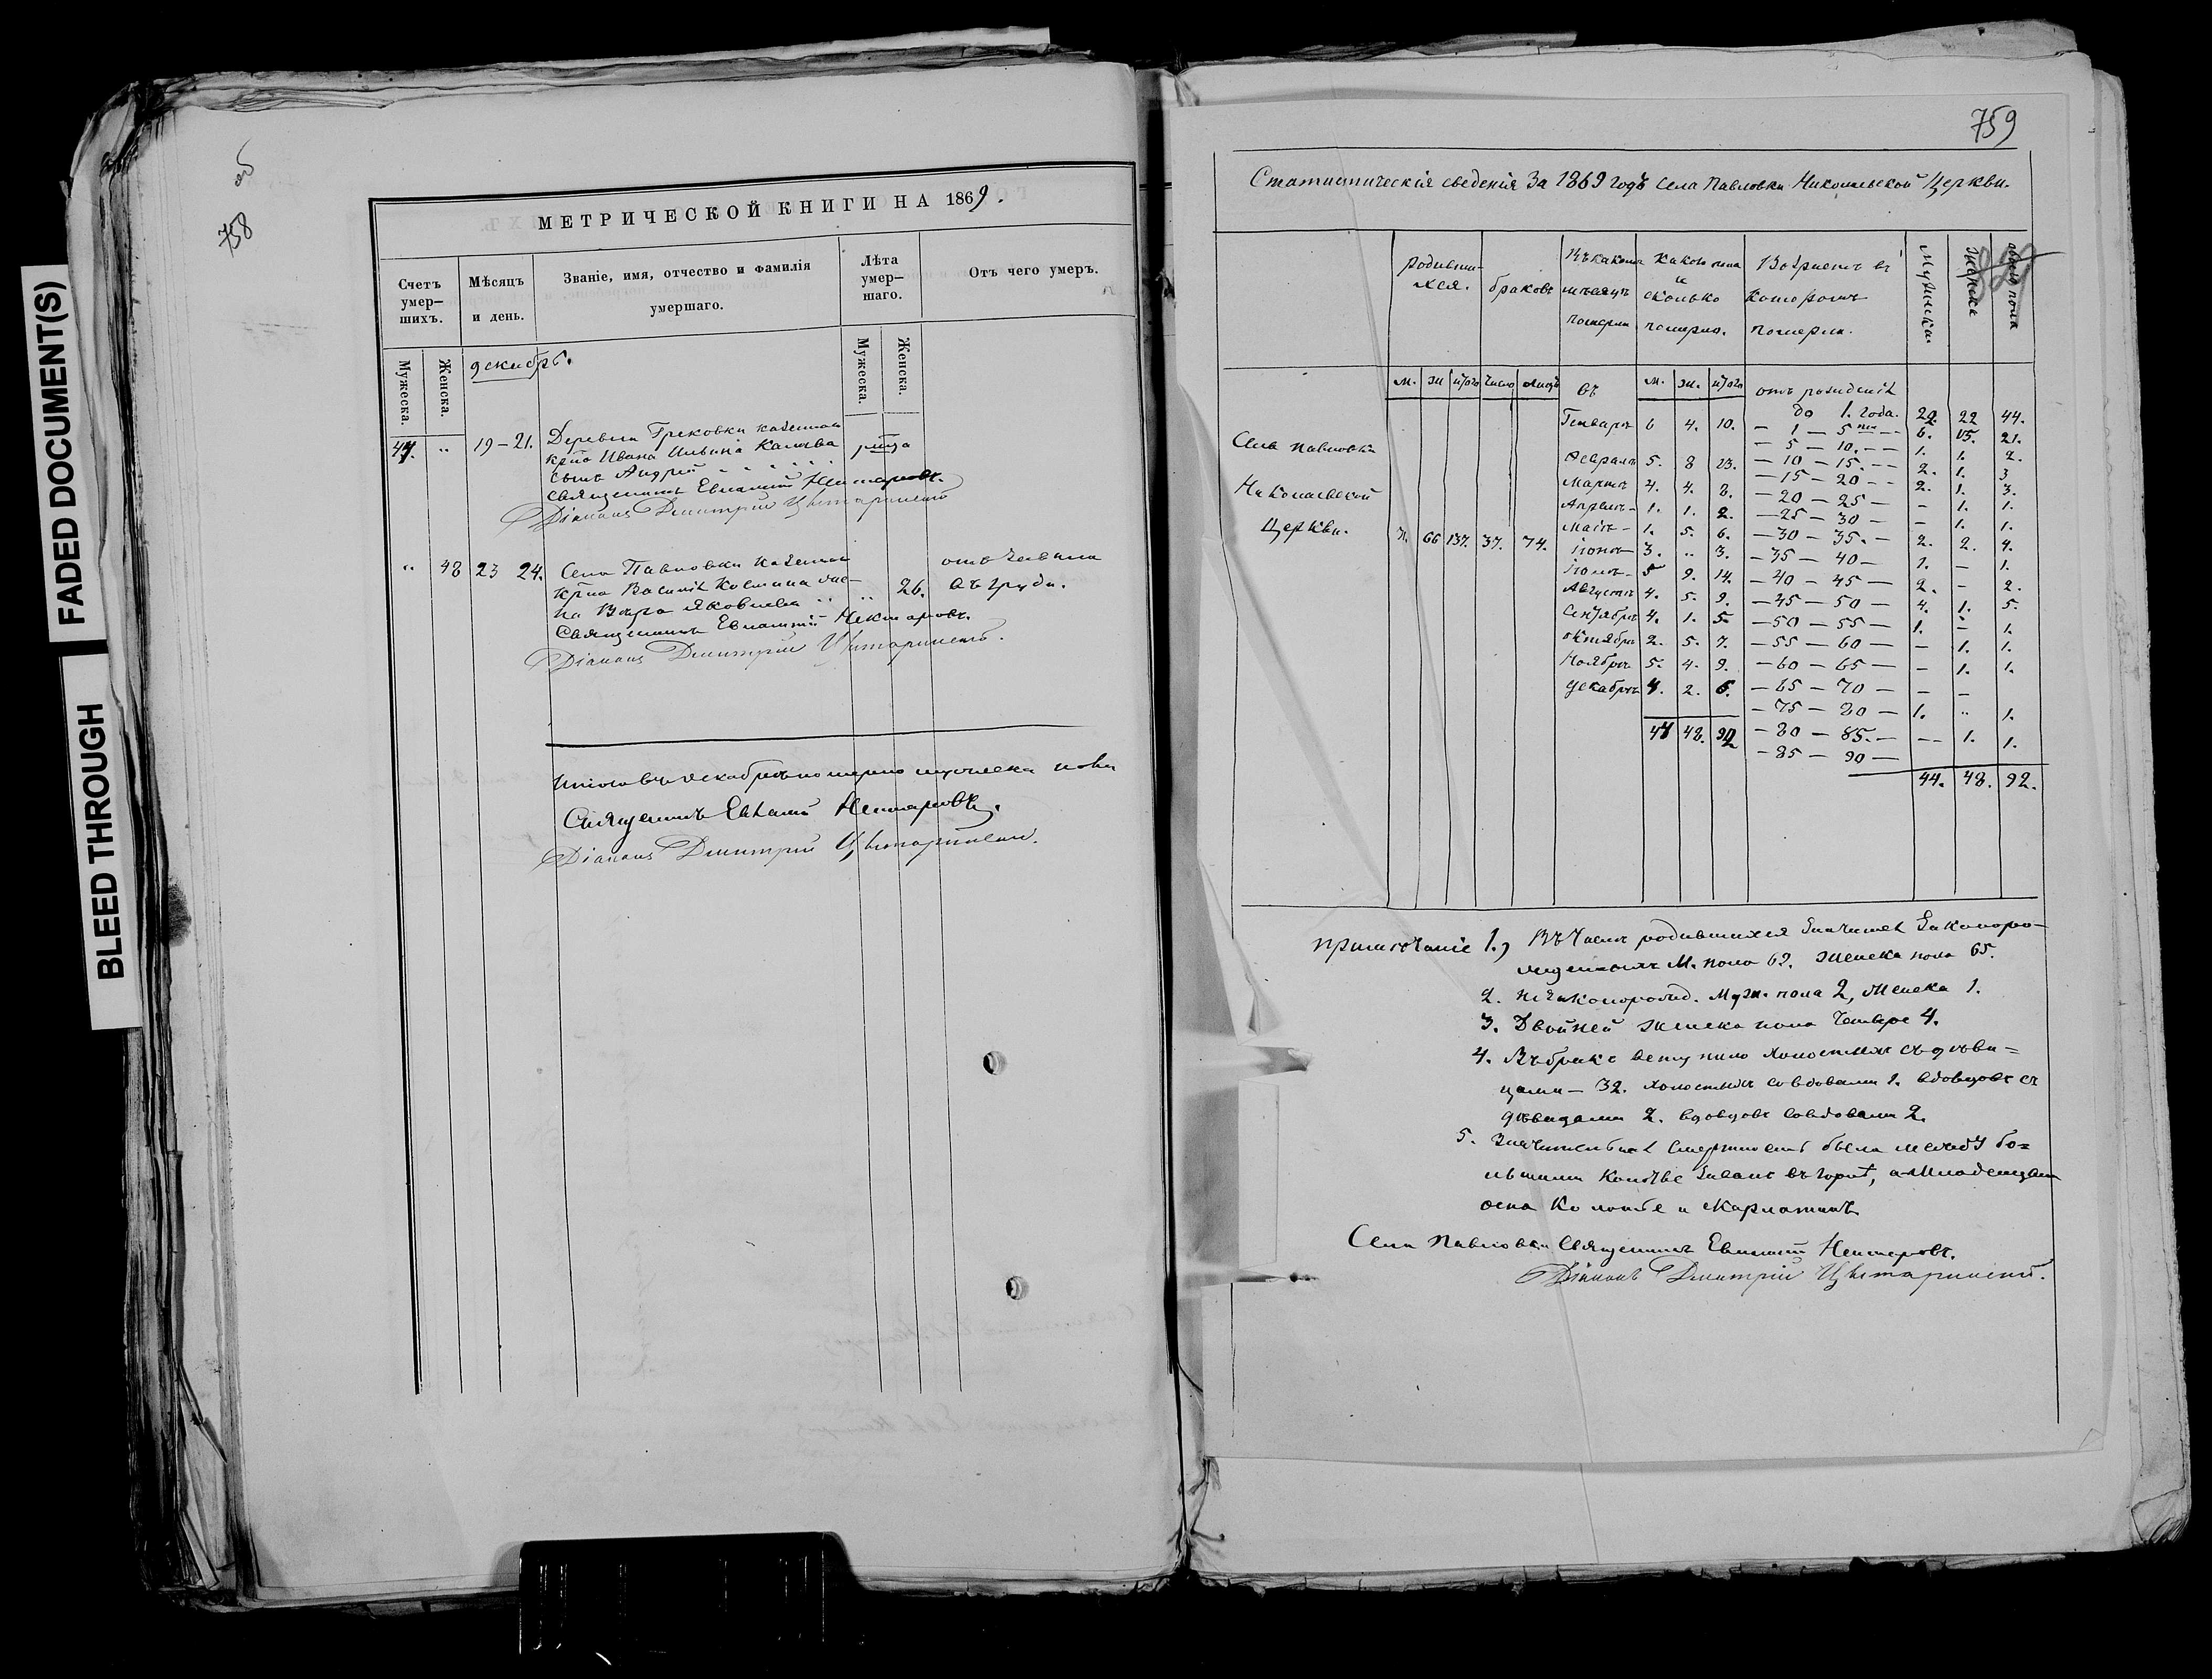 FADED DOCUMENT(S)
BLEED THROUGH
об
758
МЕТРИЧЕСКОЙ КНИГИ НА 1869.
Счетъ умер-шихъ.
Мѣсяцъ и день.
Званіе, имя, отчество и фамилія умершаго.
Лѣта умер-шаго.
Отъ чего умеръ.
Мужеска.
Женска.
Мужеска.
Женска.
декабрь.
44. " 19-21. Деревни Грековки казеннаго
крна Ивана Ильина
сынъ Андрей
Священникъ Евгеній Нектаровъ.
Діаконъ Дмитрій
" 48 23 24. Села Павловки казеннаго
крна Василія Козмина же-
на Вѣра Яковлева " 26.
въ груди.
Священникъ Евгеній Нектаровъ.
Діаконъ Дмитрій
Итого въ декабрѣ померло мужеска пола
Священникъ Евгеній Нектаровъ.
Діаконъ Дмитрій
759
Статистическія сведенія за 1869 годъ села Павловки Николаевской Церкви.
Родивши-хся.
браковъ
Въ какомъ мѣсяцѣ померли
Какого пола и сколько померло.
Возрастъ въ которомъ померли.
Мужеска
Женска
обоего пола
м. ж итого число лицъ въ м. ж. итого отъ рожденія
до 1. года. 22 22 44.
Генварѣ 6 4. 10. - 1 - 5 лет 6. 15. 21.
- 5 - 10. 1. 1. 2.
Села Павловки
Февралѣ 5. 8 13. - 10 - 15. 2. 1. 3
Мартѣ 4. 4. 8. - 15 - 20 2. 1. 3.
Николаевской
Апрѣлѣ 1. 1. 2. - 20 - 25 - - 1. 1.
Маіѣ 1. 5. 6. - 25 - 30 - - 1. 1.
Церкви. 71. 66 137. 37. 74.
Іюнѣ 3. " 3. - 30 - 35. - 2. 2. 4.
Іюлѣ 5 9. 14. - 35 - 40 - 1. - 1.
Августѣ 4. 5. 9. - 40 - 45 - 2. - 2.
Сентябрѣ 4. 1. 5 - 45 - 50 - 4. 1. 5.
Октябрѣ 2. 5. 7. - 50 - 55 - 1. - 1.
Ноябрѣ 5. 4. 9. - 55 - 60 - - 1. 1.
Декабрѣ 4. 2. 6. - 60 - 65 - - 1. 1.
- 65 - 70 - - -
- 75 - 80 - 1. " 1.
44 48. 92 - 80 - 85. - - 1. 1.
- 85 - 90 -
44. 48. 92.
Примѣчаніе 1.) Въ числѣ родившихся значится Законоро-
жденныхъ М. пола 62. женска пола 65.
2. Незаконорожд. Муж. пола 2, Женска 1.
3. Двойней женска пола четверо 4.
4. Въ бракъ вступило холостыхъ съ дѣви=
цами - 32. холостыхъ со вдовами 1. вдовцовъ съ
дѣвицами 2. вдовцовъ со вдовами 2.
5. Значительная смертность была между бо=
льшими въ горлѣ, а Младенцевъ
оспа и скарлатинъ
Села Павловки Священникъ Евгеній Нектаровъ.
Діаконъ Дмитрій